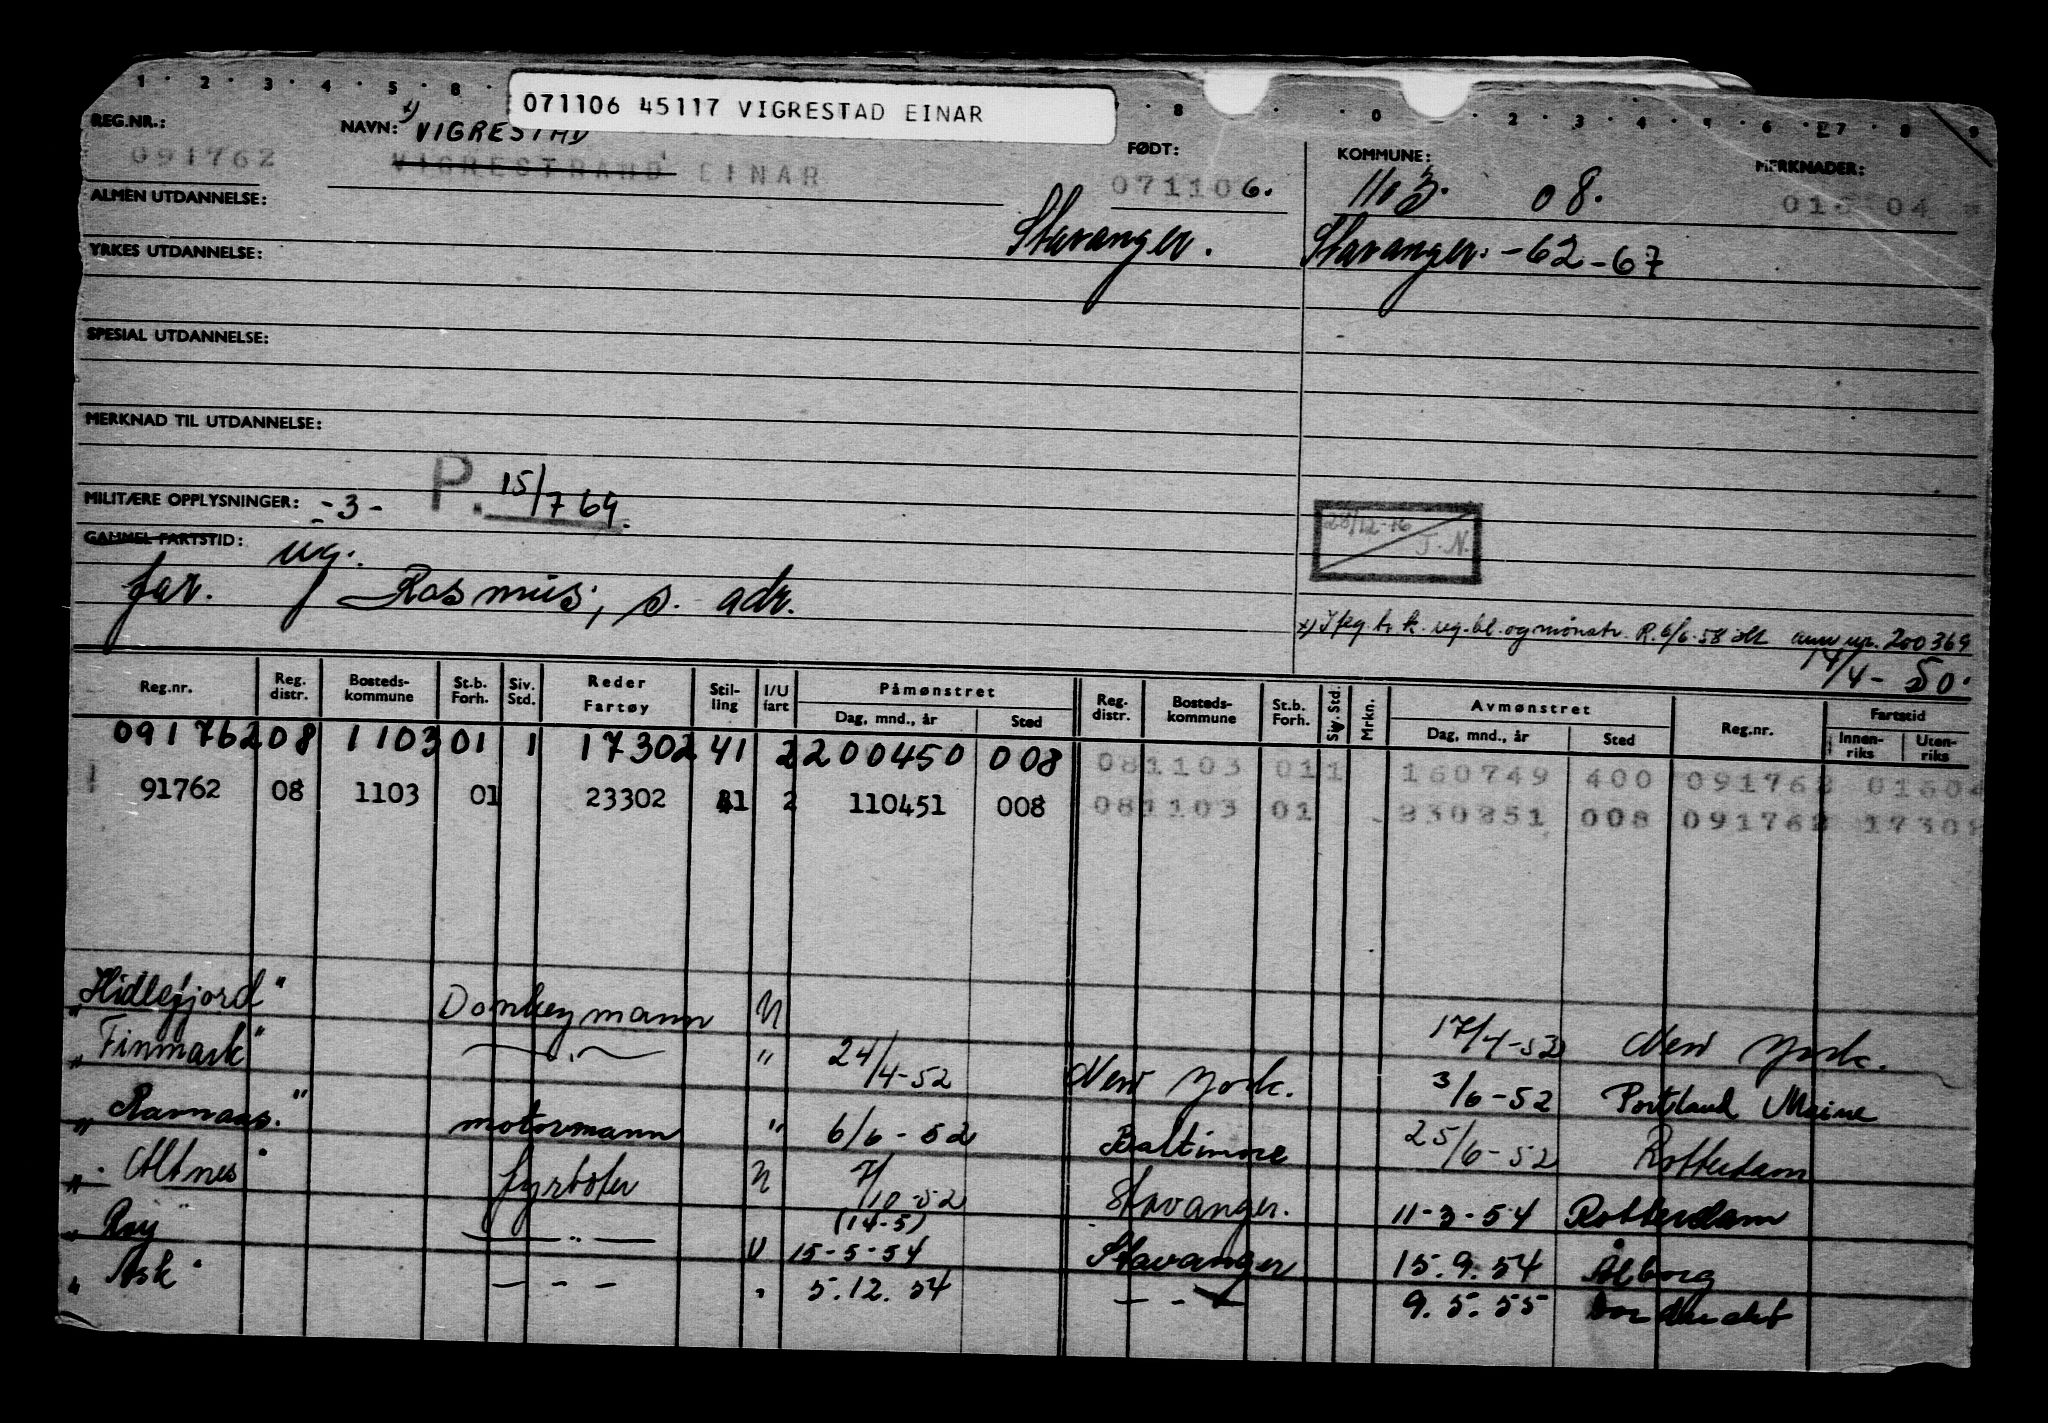 071106 45117 VIGRESTAD EINAR
REG.NR.: NAVN: x) VIGRESTAD FØDT: KOMMUNE: MERKNADER:
091762 VIGRESTRAND EINAR 071106. 1103. 08. 04
ALMEN UTDANNELSE: Stavanger. Stavanger. -62-67
YRKES UTDANNELSE:
SPESIAL UTDANNELSE:
MERKNAD TIL UTDANNELSE:
MILITÆRE OPPLYSNINGER: -3- P. 15/7 69.
28/12-76 T.N.
GAMMEL FARTSTID: ug.
far. Rasmus, s. adr.
x) ug.bl. og mønstr. R. 6/6-58 200369
14/4-50.
Reg.nr. Reg. distr. Bosteds-kommune St.b. Forh. Siv. Std. Reder Fartøy Stil-ling I/U fart Påmønstret Dag, mnd., år Sted Reg. distr. Bosteds-kommune St.b. Forh. Siv. Std. Mrkn. Avmønstret Dag, mnd., år Sted Reg.nr. Fartstid Innen-riks Uten-riks
091762 08 1103 01 1 17302 41 2 200450 008 08 1103 01 1 160749 400 091762 01604
91762 08 1103 01 23302 41 2 110451 008 08 1103 01 230251 008 091762 17302
"Hidlefjord" Donkeymann U 17/4-52 New York.
"Finmark" — " — " 24/4-52 New York. 3/6-52 Portland Maine
"Ravnaas." motormann " 6/6-52 Baltimore 25/6-52 Rotterdam
"Altnes" fyrbøter U 7/10-52 Stavanger. 11-3-54 Rotterdam
(14-5)
"Roy" — " — U 15-5-54 Stavanger 15.9.54 Ålborg
"Ask" - - - " 5.12.54 - " - 9.5.55 Dordrecht